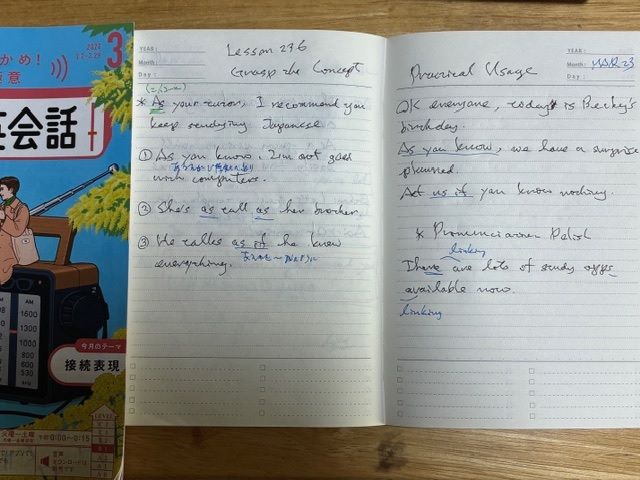 かめ!
極意
2024
3
英会話
AM
1600
1300
1000
800
600
530
今月のテーマ
接続表現
午前0:00〜0:15
音声
LEVEL
YEAR:
Month:
Day:
Lesson 276
Grasp the Concept
* As your tutor, I recommend you
keep studying Japanese
① As you know, I'm not good
with computers.
② She's as tall as her brother.
③ He talks as if he knew
everything.
YEAR:
Month: MAR 23
Day:
Practical Usage
OK everyone, today is Becky's
birthday.
As you know, we have a surprise
planned.
Act as if you know nothing.
* Pronunciation Polish
linking
There are lots of study apps
available now.
linking